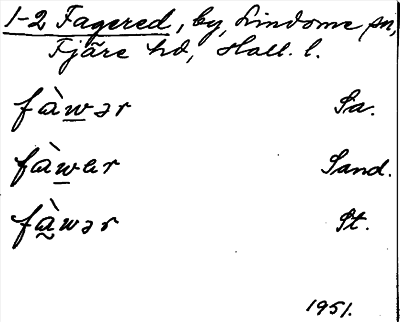 1-2 Fagered, by, Lindome sn,
Fjäre hd, Hall. l.
fàwər Sa.
fàwɐr Sand.
fàwər St.
1951.